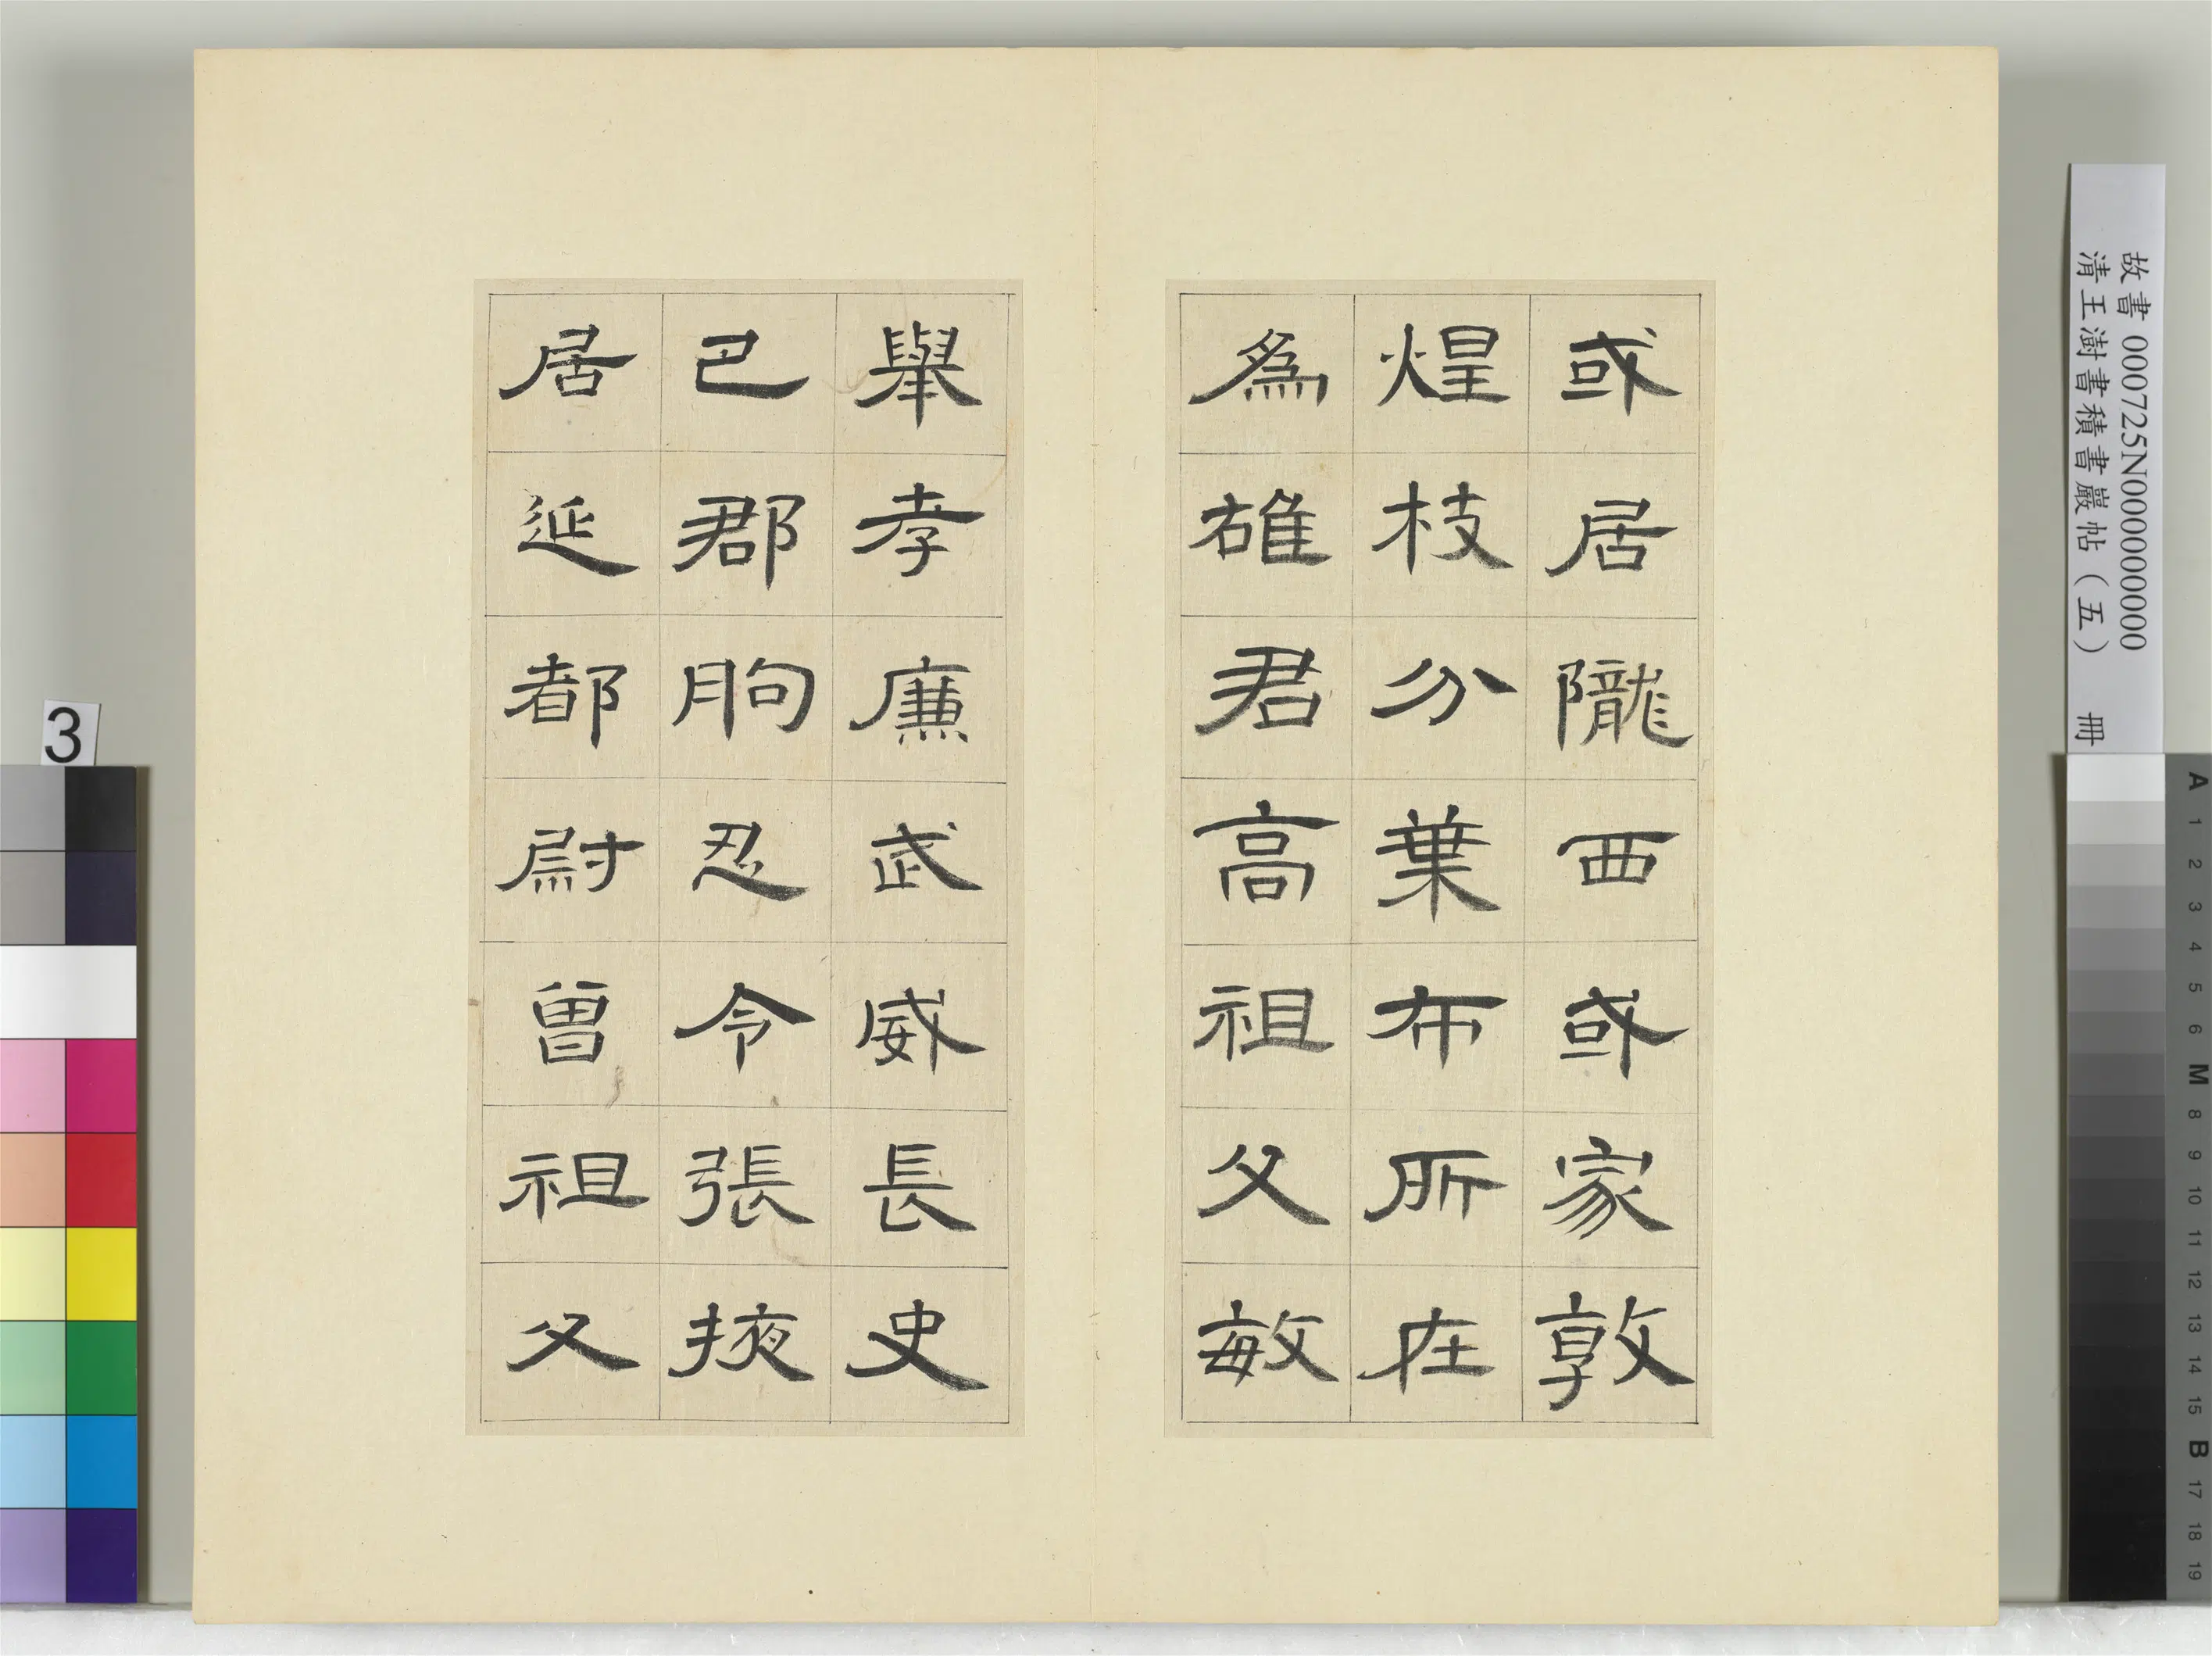 或居隴西或家敦
煌枝分葉布所在
為雄君高祖父敏
舉孝廉武威長史
巴郡朐忍令張掖
居延都尉曾祖父
故書 000725N000000000
清王澍書積書巖帖（五） 冊
3
A 1 2 3 4 5 6 M 8 9 10 11 12 13 14 15 B 17 18 19